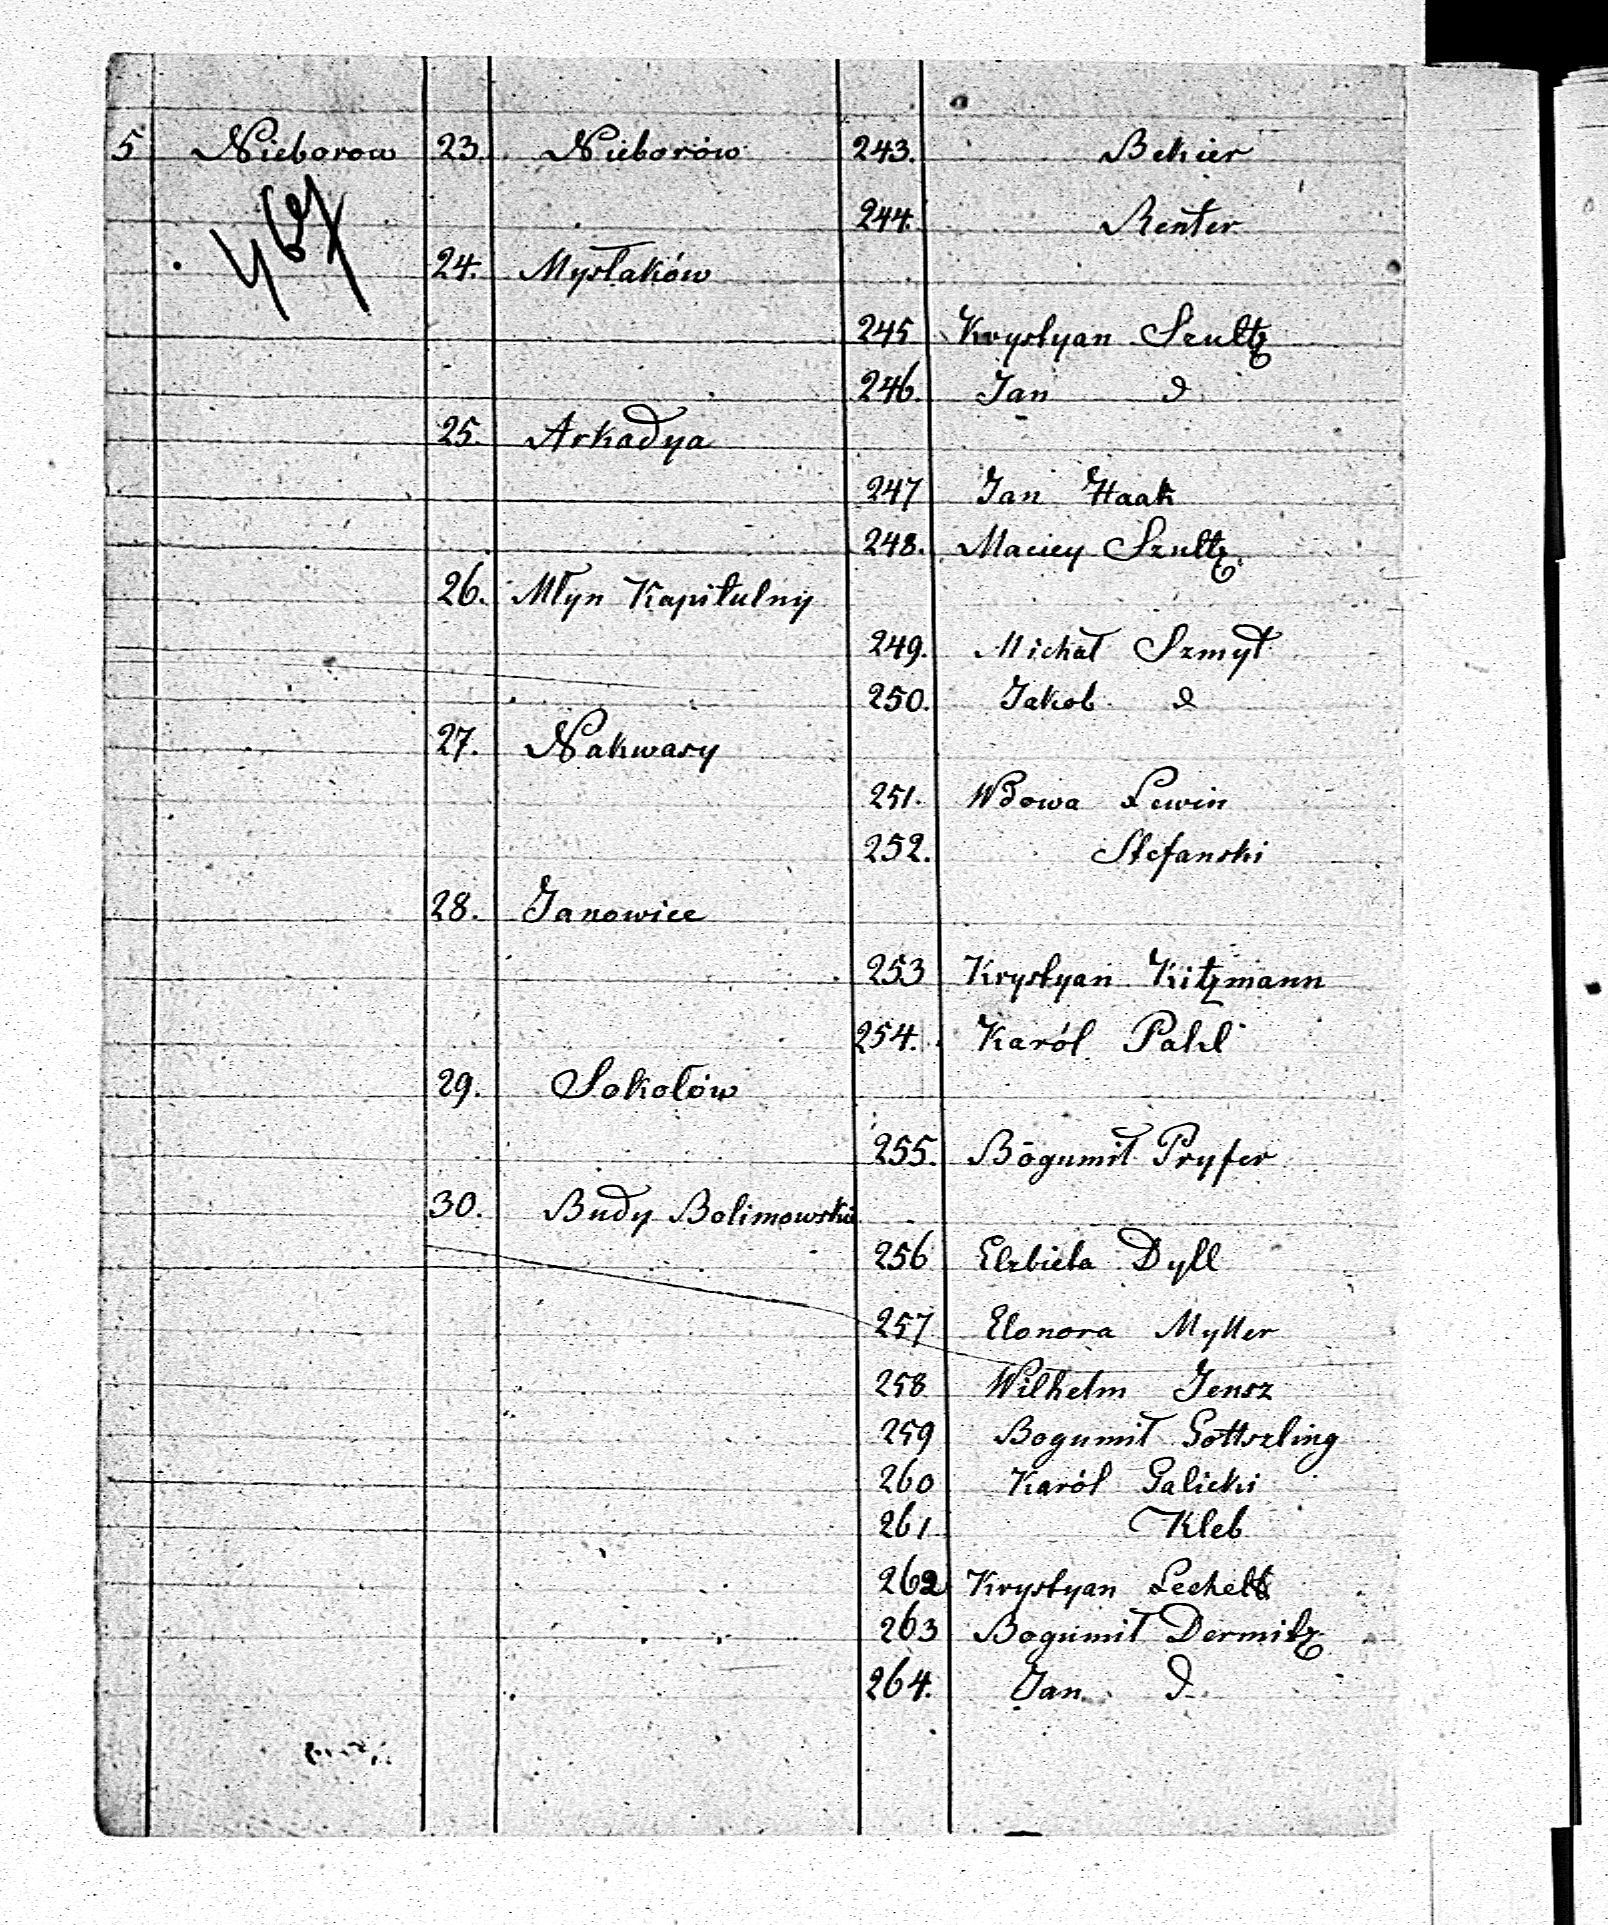 5 Nieborow 23. Nieborów 243. Bekier
244. Renter
467
24. Mysłaków
245 Krystyan Szultz
246. Jan d
25. Arkadya
247 Jan Haak
248. Maciey Szultz
26. Młyn Kapitulny
249. Michał Szmyt
250. Jakob d
27. Nakwasy
251. Wdowa Lewin
252. Stefanski
28. Janowice
253 Krystyan Kitzmann
254. Karól Pahl
29. Sokołów
255. Bogumił Pryfer
30. Budy Bolimowskie
256 Elzbieta Dyll
257 Elonora Myller
258 Wilhelm Jensz
259 Bogumił Gottszling
260 Karól Galicki
261 Kleb
262 Krystyan Lechelt
263 Bogumił Dermitz
264. Jan d